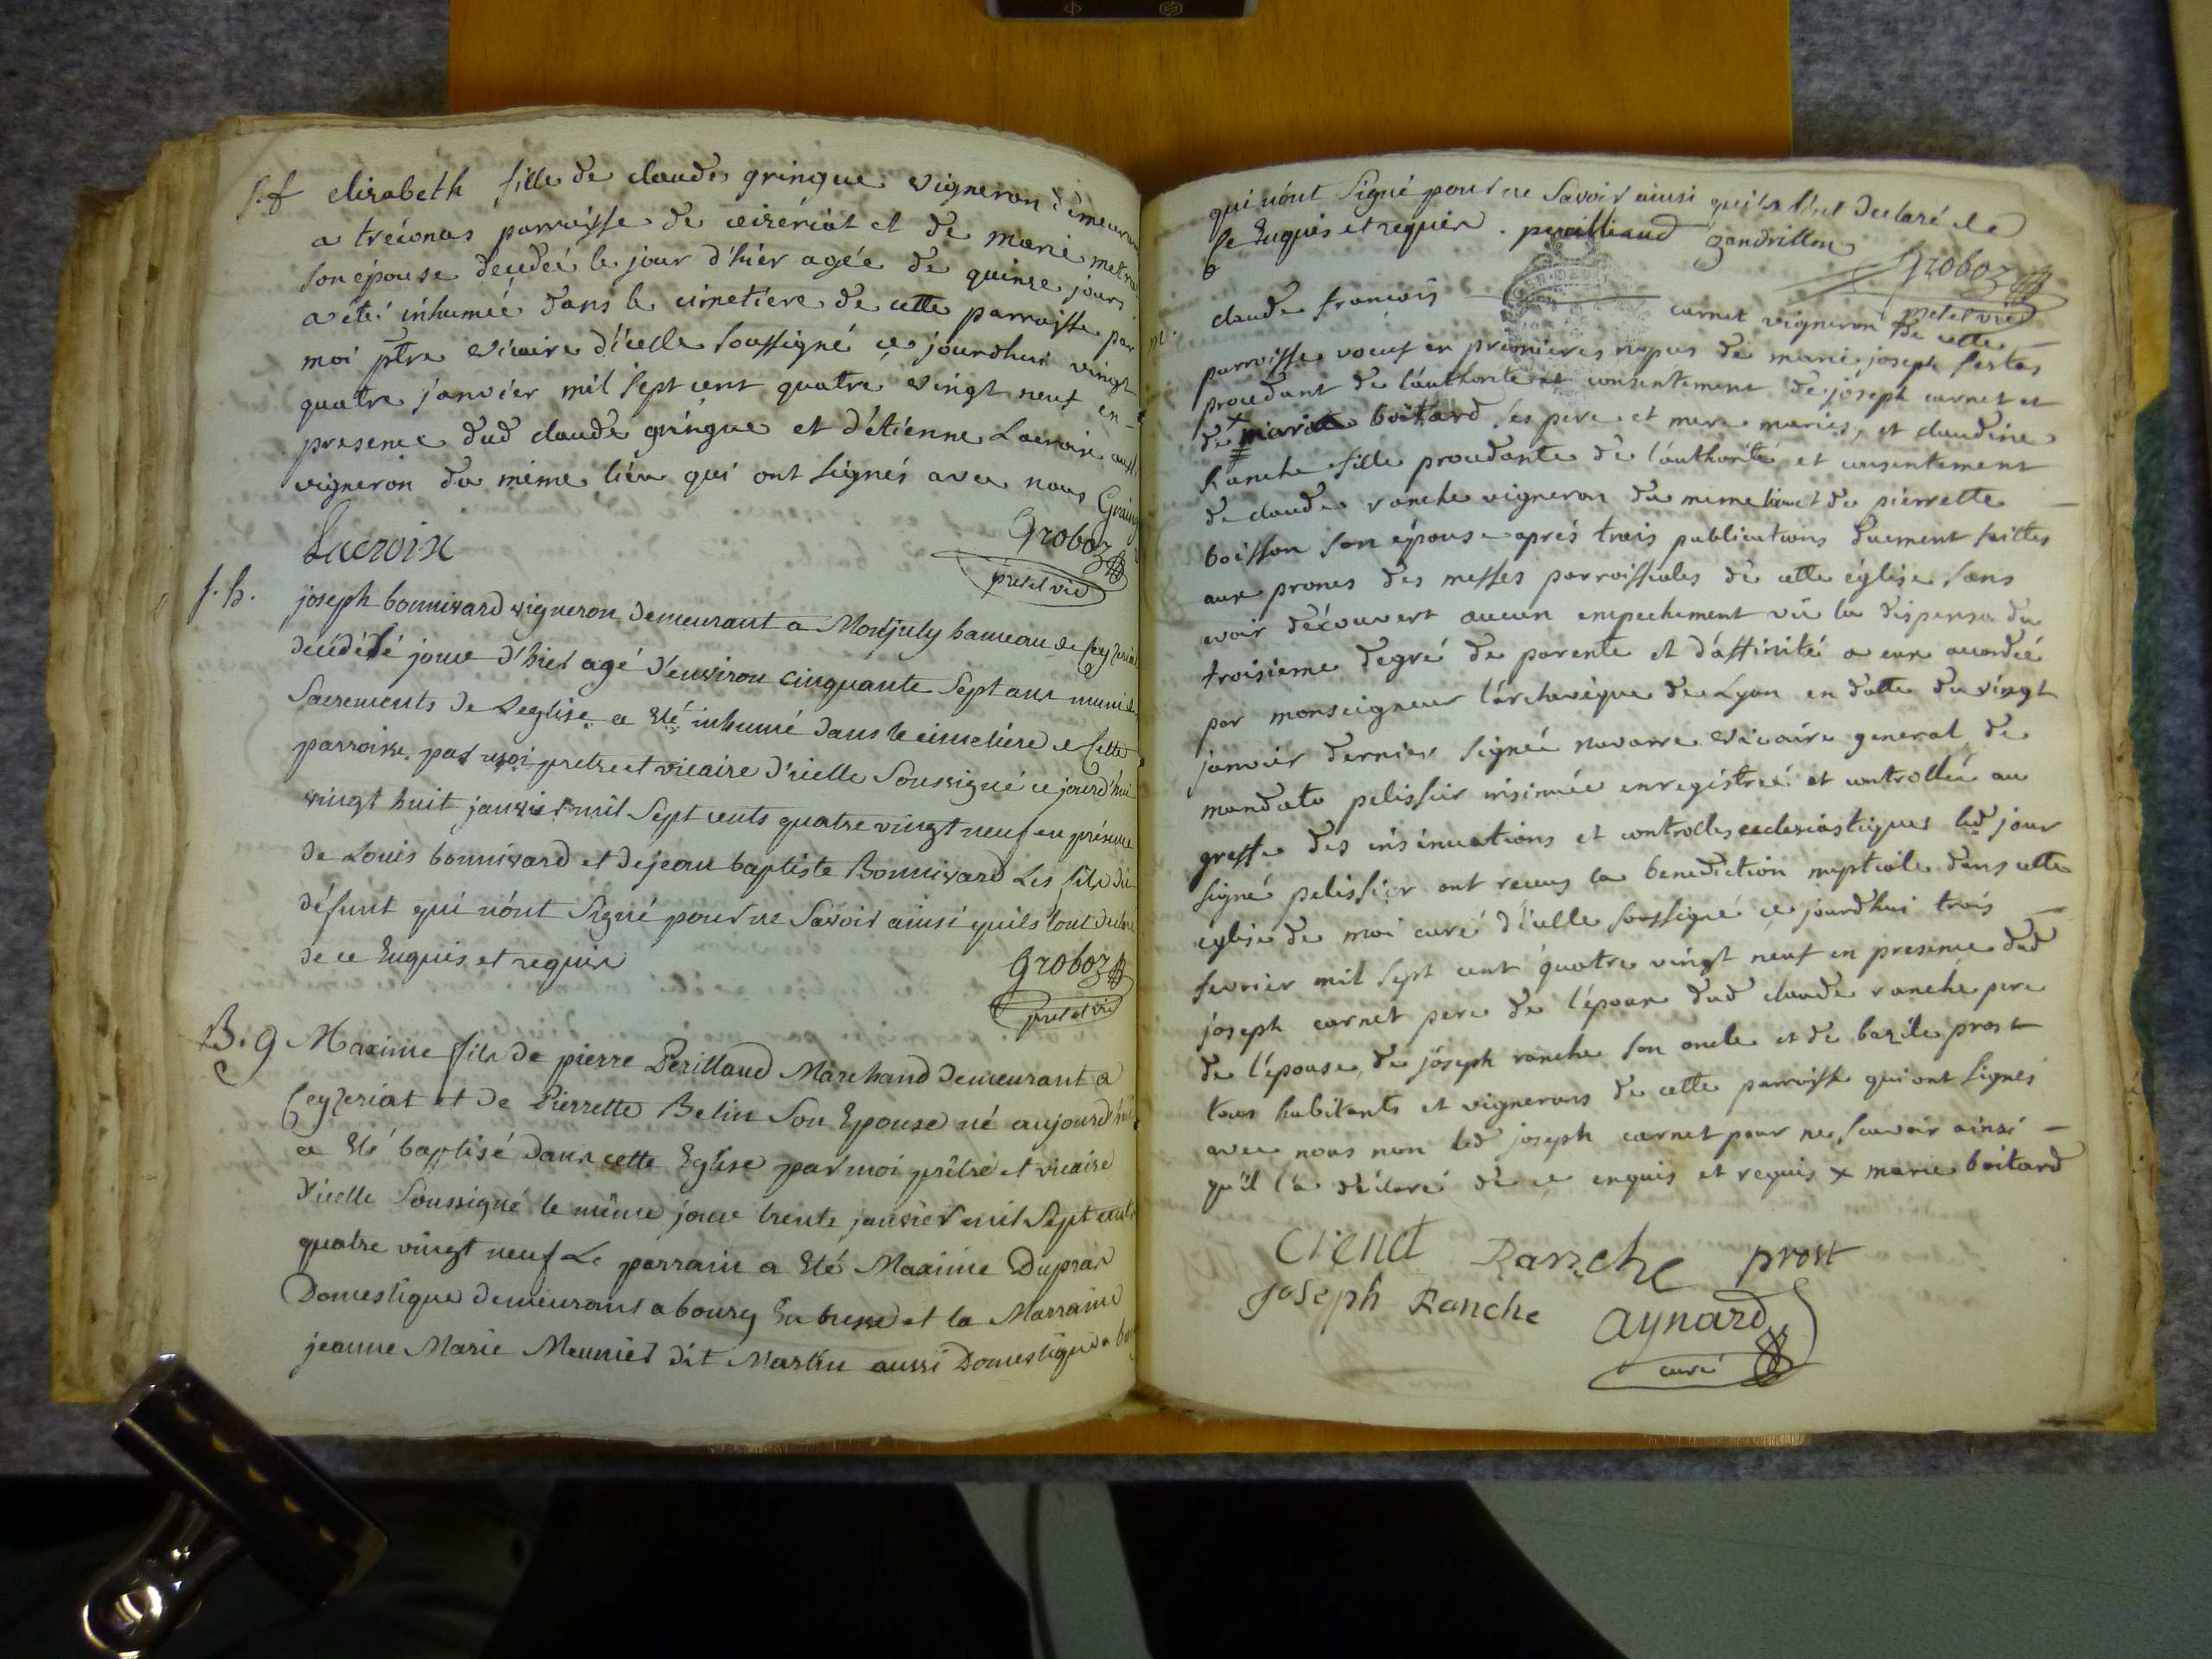 S. f elisabeth fille de claude gringue vigneron demeurant
a tréconas parroisse de ceizériat et de marie
son épouse decedeé le jour d'hier agée de quinze jours
a été inhumeé dans le cimetiere de cette parroisse par
moi ptre vicaire d'icelle soussigné ce jourdhui vingt
quatre janvier mil sept cent quatre vingt neuf en
presence dud claude gringue et d'étienne Lacroix aussi
vigneron du même lieu qui ont signés avec nous
Lacroix
Groboz
pret et vic
S. h. joseph bonnivard vigneron demeurant a Montjuly hameau de Ceyzeriat
décédé lé jour d'hier agé d'environ cinquante Sept ans muni des
Sacrements de L'eglise a Eté inhumé dans le cimetiére de Cette
parroisse par moi pretre et vicaire d'icelle Soussigné ce jourd'hui
vingt huit janvier mil Sept cents quatre vingt neuf en présence
de Louis bonnivard et de jean baptiste Bonnivard Les fils du
défunt qui n'ont Signé pour ne Savoir ainsi qu'ils l'ont declaré
de ce Enquis et requis
Groboz
pret et vic
B. 9 Maxime fils de pierre Perillaud Marchand demeurant a
Ceyzeriat et de Pierrette Belin Son Epouse né aujourd'hui
a Eté baptisé dans cette Eglise par moi prêtre et vicaire
d'icelle Soussigné le même jour trente janvier mil Sept cents
quatre vingt neuf Le parrain a Eté Maxime Dupras
Domestique demeurant a bourg En bresse et la Marraine
jeanne Marie Meunier dit Martin aussi Domestique a
qui n'ont Signé pour ne Savoir ainsi qu'ils l'ont declaré de
ce Enquis et requis. perilliaud gandrillon
Groboz
pret et vic
m. claude françois carnet vigneron de cette
parroisse voeuf en premieres nopces de marie joseph
procedant de l'authorite et consentement de joseph carnet et
de x marie boitard ses pere et mere mariés, et claudine
Ranche fille procedante de l'authorité et consentement
de claude ranche vigneron du meme lieu et de pierrette
boisson son épouse aprés trois publications duement faittes
aux prones des messes parroissiales de cette église sans
avoir découvert aucun empechement vû la dispense du
troisieme degré de parenté et d'affinité a eux accordeé
par monseigneur l'archevêque de Lyon en datte du vingt
janvier dernier signeé navarre vicaire general de
mandato pelissier insinuée enregistreé et controlleé au
greffe des insinuations et controlles ecclesiastiques led jour
signé pelissier ont reçus la benediction nuptiale dans cette
eglise de moi curé d'icelle soussigné ce jourdhui trois
fevrier mil sept cent quatre vingt neuf en presence dud
joseph carnet pere de l'époux dud claude ranche pere
de l'épouse, de joseph ranche son oncle et de bazile prost
tous habitants et vignerons de cette parroisse qui ont signés
avec nous non led joseph carnet pour ne scavoir ainsi
qu'il l'a déclaré de ce enquis et requis x marie boitard
Ranche prost
joseph Ranche Aynard
curé